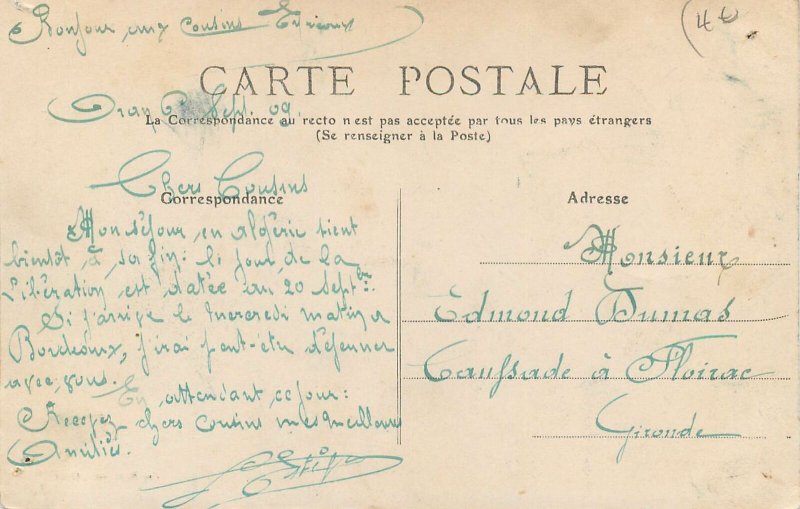 Bonjour aux cousins
44
CARTE POSTALE
Oran Sept. 09
La Correspondance au recto n'est pas acceptée par tous les pays étrangers
(Se renseigner à la Poste)
Chers Cousins
Correspondance
Mon séjour en algérie tient
bientôt à sa fin: le jour de la
Libération est datée au 20 Septbre:
Si j'arrive le Mercredi matin à
Bordeaux, j'irai peut-être déjeuner
avec vous.
En attendant ce jour:
Recevez chers cousins mes meilleures
Amitiés.
Adresse
Monsieur
Edmond Dumas
Caussade à Floirac
Gironde